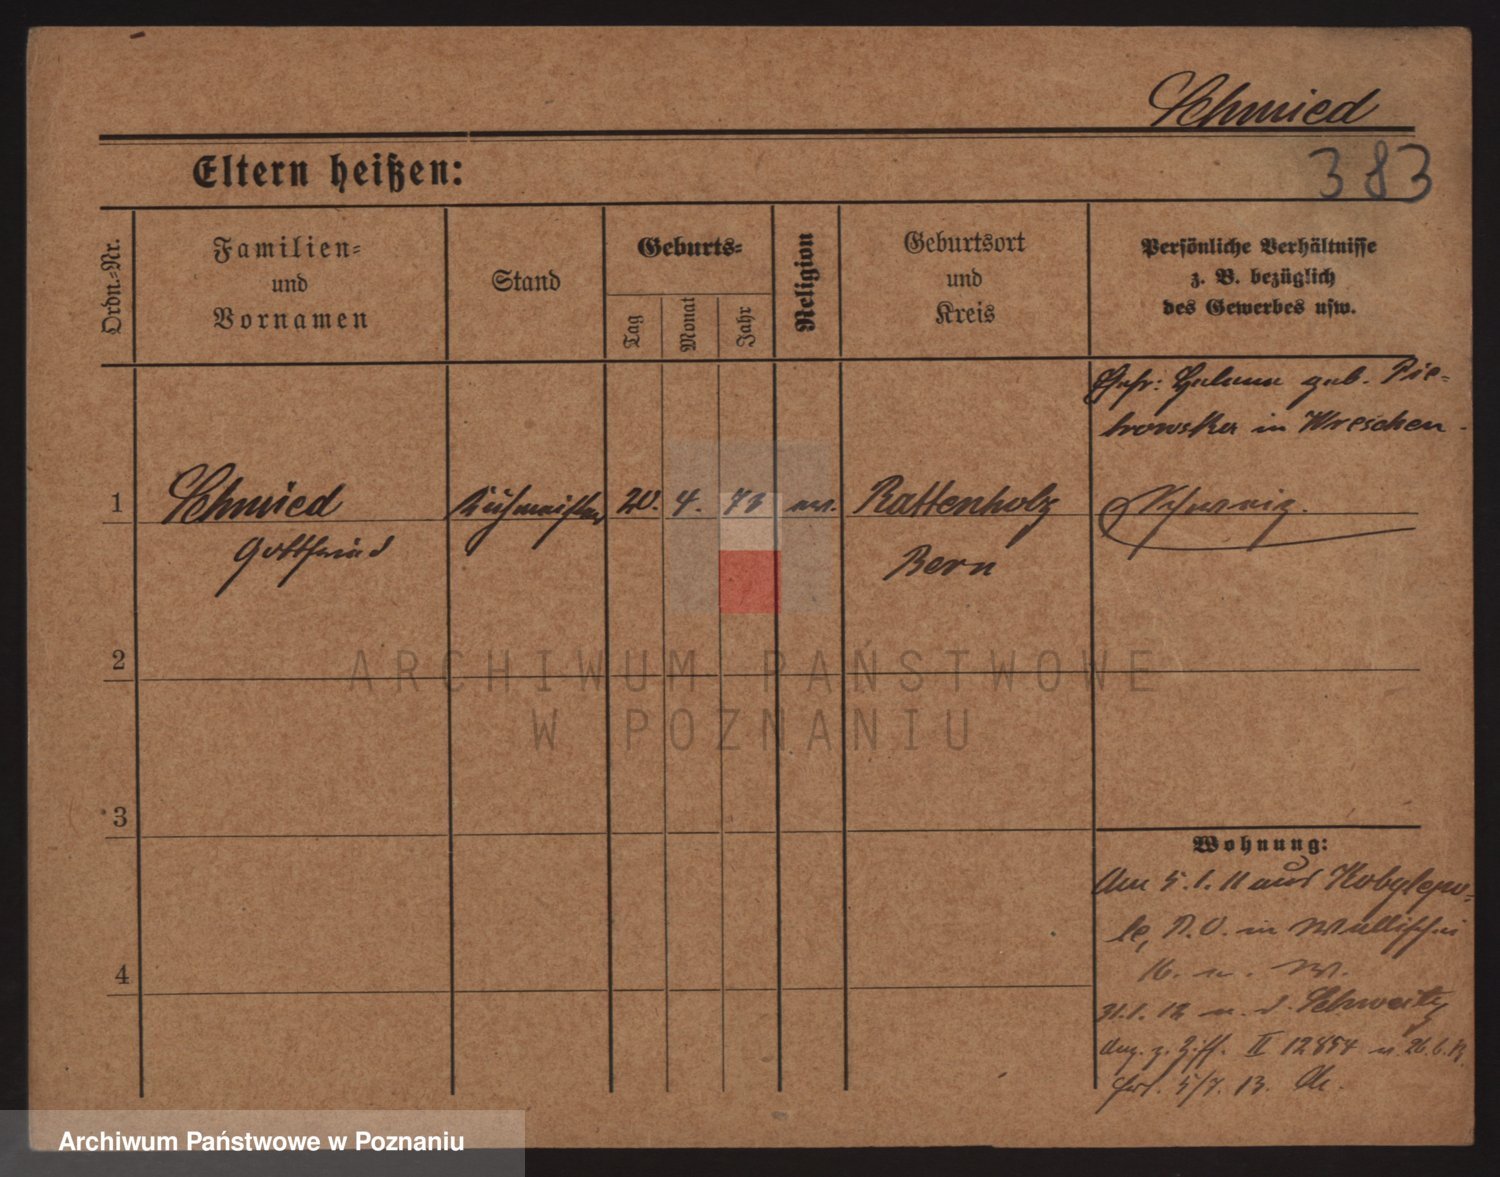 Schmied
383
Eltern heißen:
Ordn.-Nr.
Familien-
und
Vornamen
Stand
Geburts-
Tag
Monat
Jahr
Religion
Geburtsort
und
Kreis
Persönliche Verhältnisse
z. B. bezüglich
des Gewerbes usw.
Ehefr: Helene geb. Pie-
trowska in Wreschen
1
Schmied
Kuhmeister
20.
4.
73
ev.
Rattenholz
Schweiz.
Gottfried
Bern
2
ARCHIWUM PAŃSTWOWE
W POZNANIU
3
Wohnung:
Am 5.1.11 aus Kobylepo-
le, P.O. in
4
16. n. W.
31.1.12 n. d. Schweitz
Anz. z. Ziff. II 12854 v. 26.6.
5/7. 13.
Archiwum Państwowe w Poznaniu